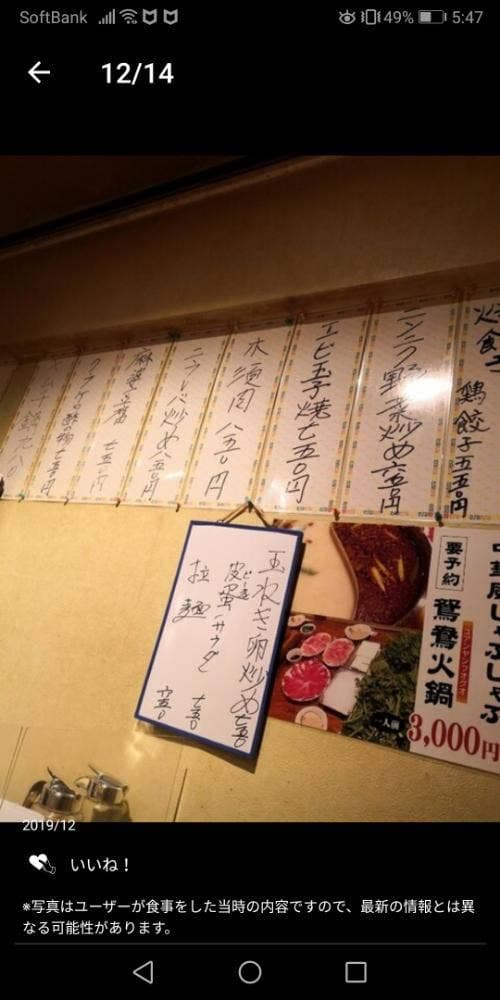 SoftBank 49% 5:47
12/14
鶏餃子 五五〇円
ニンニク野菜炒め 六五〇円
エビ玉子焼 七五〇円
木須肉 八五〇円
ニラレバ炒め 八五〇円
麻婆豆腐 七五〇円
クラゲの酢の物 七五〇円
玉ねぎ卵炒め 七五〇
皮蛋サラダ 七五〇
ピータン
拉麺 六五〇
中華風しゃぶしゃぶ
要予約
鴛鴦火鍋
ユアンヤンフオグオ
一人前
3,000円
2019/12
いいね！
※写真はユーザーが食事をした当時の内容ですので、最新の情報とは異
なる可能性があります。